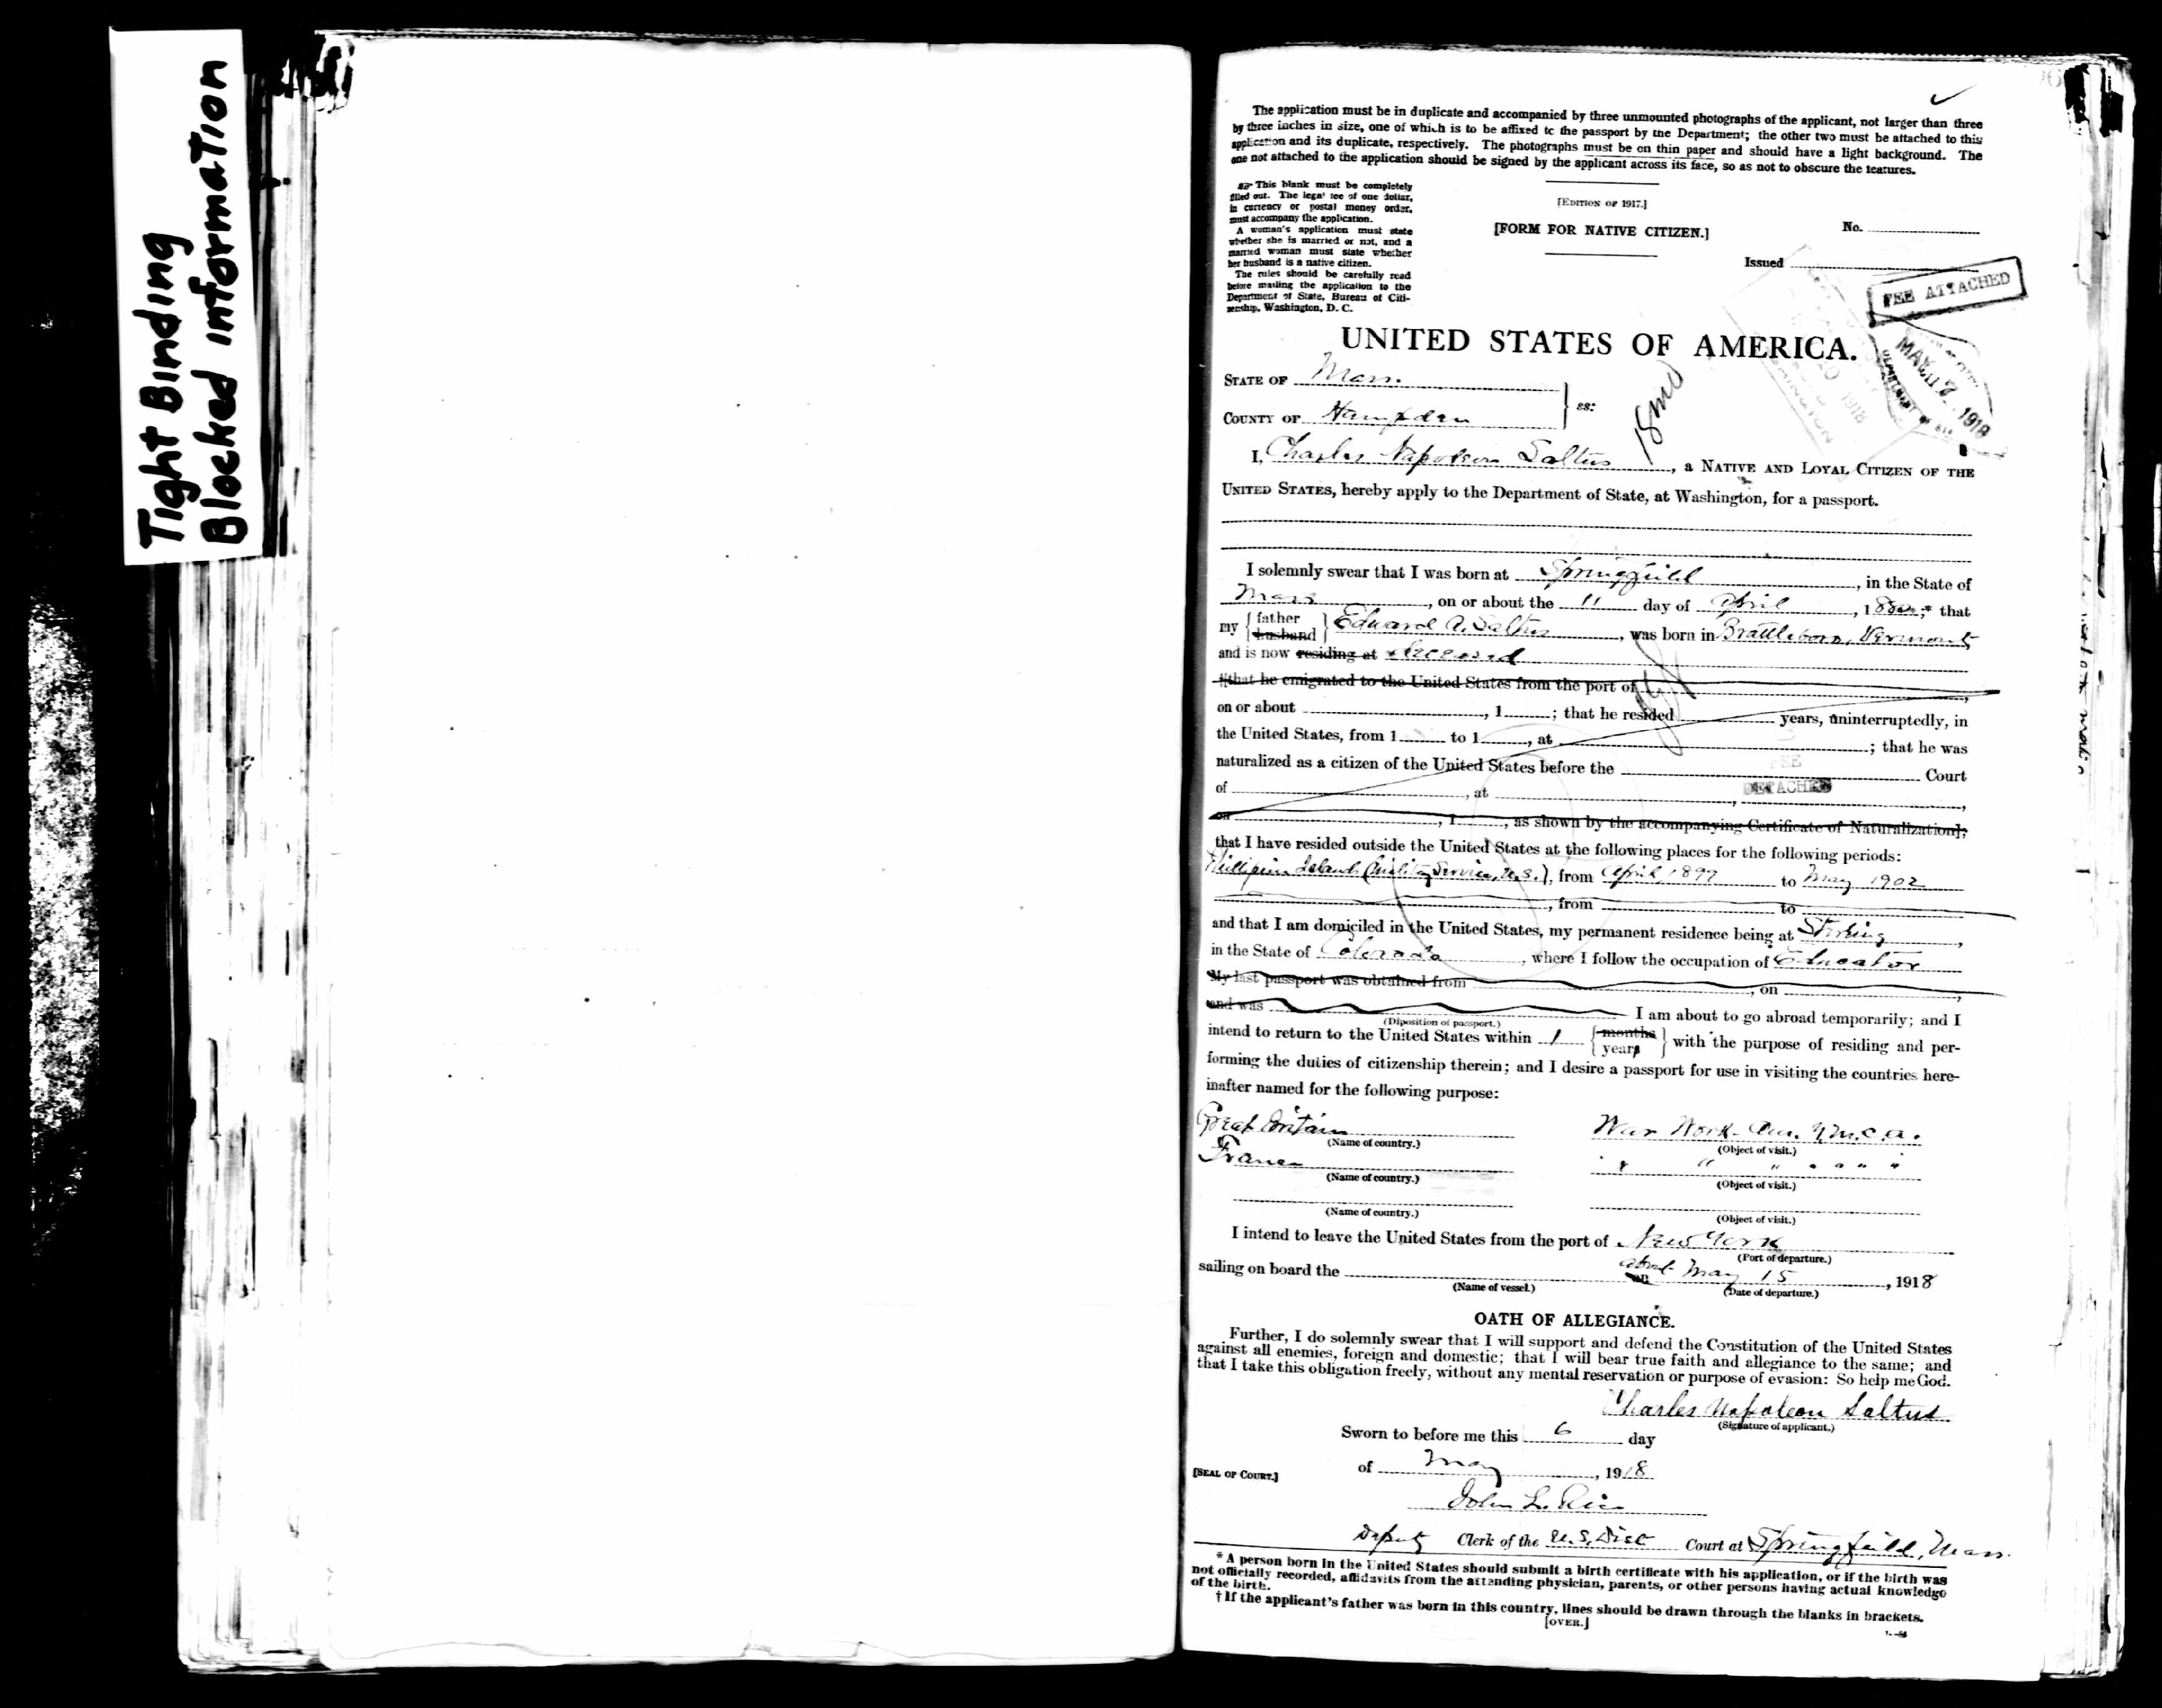 Tight Binding
Blocked information
The application must be in duplicate and accompanied by three unmounted photographs of the applicant, not larger than three
by three inches in size, one of which is to be affixed to the passport by the Department; the other two must be attached to this
application and its duplicate, respectively. The photographs must be on thin paper and should have a light background. The
one not attached to the application should be signed by the applicant across its face, so as not to obscure the features.
This blank must be completely
filled out. The legal fee of one dollar,
in currency or postal money order,
must accompany the application.
A woman's application must state
whether she is married or not, and a
married woman must state whether
her husband is a native citizen.
The rules should be carefully read
before mailing the application to the
Department of State, Bureau of Citi-
zenship, Washington, D. C.
[EDITION OF 1917.]
[FORM FOR NATIVE CITIZEN.]
No.
Issued
FEE ATTACHED
MAY 7 1918
UNITED STATES OF AMERICA.
STATE OF Mass.
COUNTY OF Hampden
ss:
I, Charles Napoleon Saltus, a NATIVE AND LOYAL CITIZEN OF THE
UNITED STATES, hereby apply to the Department of State, at Washington, for a passport.
I solemnly swear that I was born at Springfield, in the State of
Mass, on or about the 11 day of April, 188;* that
my { father husband } Edward A. Saltus, was born in Brattleboro, Vermont,
and is now residing at deceased
†[that he emigrated to the United States from the port of
on or about , 1 ; that he resided years, uninterruptedly, in
the United States, from 1 to 1 , at ; that he was
naturalized as a citizen of the United States before the Court
FEE
DETACHED
of , at , ,
on , 1 , as shown by the accompanying Certificate of Naturalization];
that I have resided outside the United States at the following places for the following periods:
Philippine Islands (Military Service, U.S.), from April, 1899 to May 1902
, from to
and that I am domiciled in the United States, my permanent residence being at Sterling,
in the State of Colorado, where I follow the occupation of Educator
My last passport was obtained from , on ,
and was I am about to go abroad temporarily; and I
(Diposition of passport.)
intend to return to the United States within 1 { months years } with the purpose of residing and per-
forming the duties of citizenship therein; and I desire a passport for use in visiting the countries here-
inafter named for the following purpose:
Great Britain War Work - Am. Y.M.C.A.
(Name of country.) (Object of visit.)
France " " " " " " "
(Name of country.) (Object of visit.)
(Name of country.) (Object of visit.)
I intend to leave the United States from the port of New York
(Port of departure.)
sailing on board the on about May 15, 1918
(Name of vessel.) (Date of departure.)
OATH OF ALLEGIANCE.
Further, I do solemnly swear that I will support and defend the Constitution of the United States
against all enemies, foreign and domestic; that I will bear true faith and allegiance to the same; and
that I take this obligation freely, without any mental reservation or purpose of evasion: So help me God.
Charles Napoleon Saltus
(Signature of applicant.)
Sworn to before me this 6 day
of May, 1918
[SEAL OF COURT.]
John L. Rice
Deputy Clerk of the U.S. Dist Court at Springfield, Mass.
* A person born in the United States should submit a birth certificate with his application, or if the birth was
not officially recorded, affidavits from the attending physician, parents, or other persons having actual knowledge
of the birth.
† If the applicant's father was born in this country, lines should be drawn through the blanks in brackets.
[OVER.]